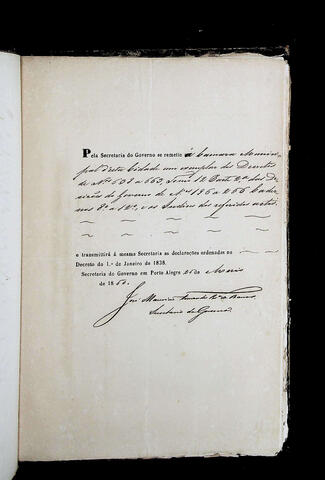 Pela Secretaria do Governo se remette á Camara Munici-
pal desta Cidade um exemplar dos Decretos
de Nos 608 a 663, Tomo 12 Parte 2a das De-
cisões do Governo de Nos 186 a 256 Cader-
nos 8o a 12o, e os Indices dos referidos actos.
e transmittirá á mesma Secretaria as declarações ordenadas no
Decreto do 1.º de Janeiro de 1838.
Secretaria do Governo em Porto Alegre 26 de Maio
de 18
José Mauricio Fernandes de Barros
Secretario do Governo